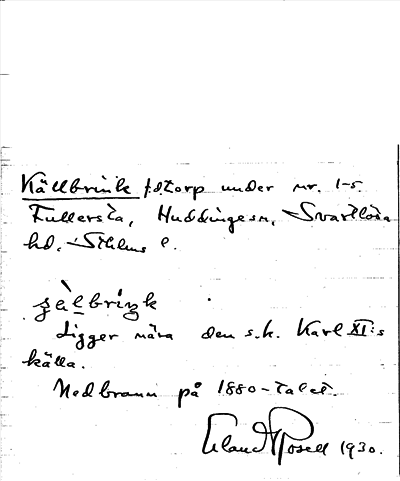 Källbrink f.d. torp under nr. 1-5.
Fullersta, Huddinge sn, Svartlösa
hd, Sthlms l.
ʂàlbriŋk
Ligger nära den s.k. Karl XI:s
källa.
Nedbrann på 1880-talet.
Erland Rosell 1930.